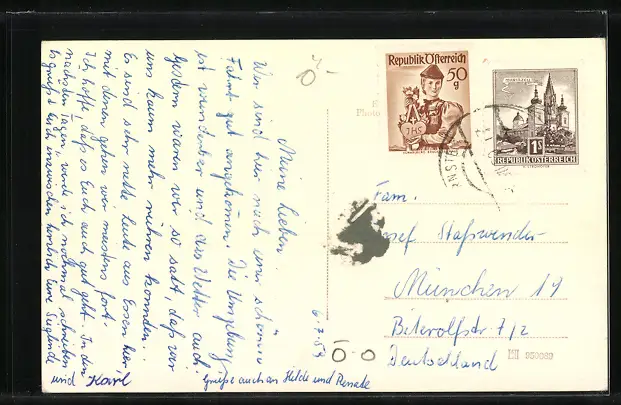 Meine Lieben!
Wir sind hier nach einer schönen
Fahrt gut angekommen. Die Umgebung
ist wunderbar und das Wetter auch
Gestern waren wir so satt, daß wir
uns kaum mehr rühren konnten.
Es sind sehr nette Leute aus Essen hier,
mit denen gehen wir meistens fort.
Ich hoffe, daß es Euch auch gut geht. In den
nächsten Tagen, werde ich nochmal schreiben
Es grüßt Euch inzwischen herzlich Eure Sieglinde
und Karl
Grüße auch an Hilde und Renate
Republik Österreich
50
g
1S
REPUBLIK ÖSTERREICH
Photo
Fam.
Josef Staßwender
München 19
Biterolfstr. 7/2
Deutschland